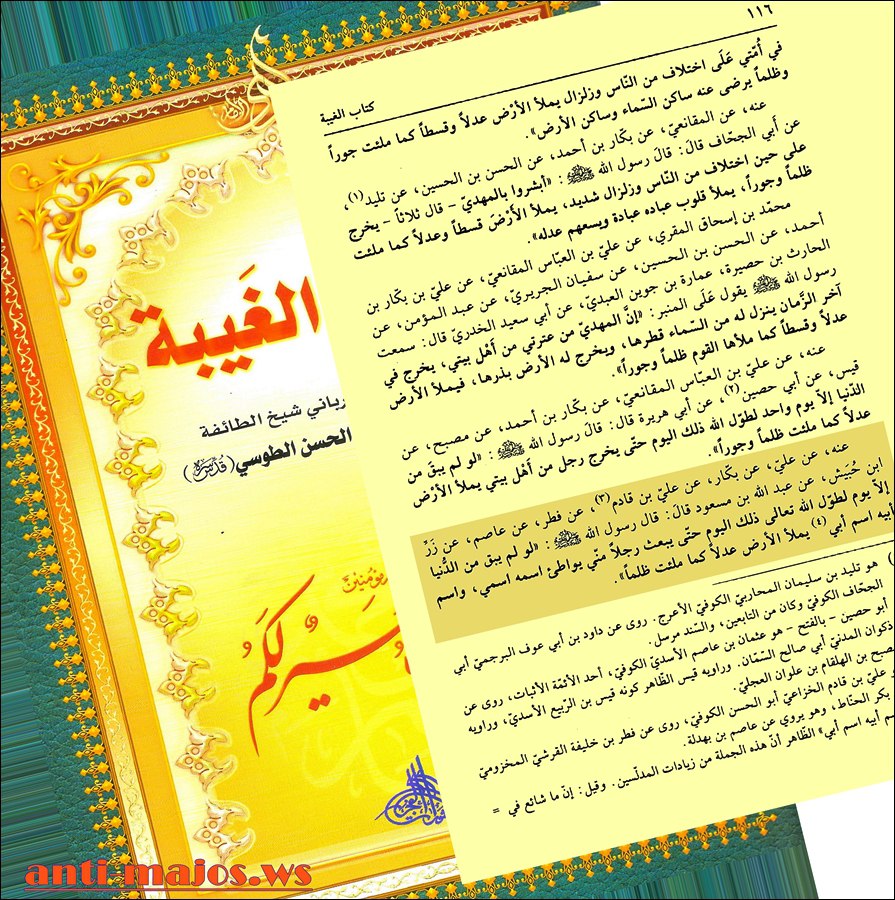 ١١٦
كتاب الغيبة
في أُمّتي عَلَى اختلاف من النّاس وزلزال يملأ الأرْض عدلاً وقسطاً كما ملئت جوراً
وظلماً يرضى عنه ساكن السّماء وساكن الأرض».
عنه، عن المقانعيّ، عن بكّار بن أحمد، عن الحسن بن الحسين، عن تليد(١)،
عن أبي الجحّاف قالَ: قالَ رسول الله ﷺ: «أبشروا بالمهديّ – قال ثلاثاً – يخرج
على حين اختلاف من النّاس وزلزال شديد، يملأ الأَرْضَ قسطاً وعدلاً كما ملئت
ظلماً وجوراً، يملأ قلوب عباده عبادة ويسعهم عدله».
محمّد بن إسحاق المقري، عن عليّ بن العبّاس المقانعيّ، عن عليّ بن بكّار بن
أحمد، عن الحسن بن الحسين، عن سفيان الجريريّ، عن عبد المؤمن، عن
الحارث بن حصيرة، عمارة بن جوين العبديّ، عن أبي سعيد الخدريّ قال: سمعت
رسول الله ﷺ يقول عَلَى المنبر: «إنَّ المهديّ من عترتي من أهْل بيتي، يخرج في
آخر الزّمان ينزل له من السّماء قطرها، ويخرج له الأرض بذرها، فيملأ الأرض
عدلاً وقسطاً كما ملأها القوم ظلماً وجوراً».
عنه، عن عليّ بن العبّاس المقانعيّ، عن بكّار بن أحمد، عن مصبح، عن
قيس، عن أبي حصين(٢)، عن أبي هريرة قال: قالَ رسول الله ﷺ: «لو لم يبقَ من
الدّنيا إلاّ يوم واحد لطوّل الله ذلك اليوم حتّى يخرج رجل من أَهْل بيتي يملأ الأرْض
عدلاً كما ملئت ظلماً وجوراً».
عنه، عن عليّ، عن بكّار، عن عليّ بن قادم(٣)، عن فطر، عن عاصم، عن زَرّ
ابن حُبَيش، عن عبد الله بن مسعود قالَ: قال رسول الله ﷺ: «لو لم يبق من الدُّنيا
إلاّ يوم لطوّل الله تعالى ذلك اليوم حتّى يبعث رجلاً منّي يواطئ اسمه اسمي، واسم
أبيه اسم أبي(٤) يملأ الأرض عدلاً كما ملئت ظلماً».
) هو تليد بن سليمان المحاربيّ الكوفيّ الأعرج. روى عن داود بن أبي عوف البرجميّ أبي
الجحّاف الكوفيّ وكان من التابعين، والسّند مرسل.
أبو حصين – بالفتح – هو عثمان بن عاصم الأسديّ الكوفيّ، أحد الأئمّة الأثبات، روى عن
ذكوان المدنيّ أبي صالح السّمّان. وراويه قيس الظّاهر كونه قيس بن الرّبيع الأسديّ، وراويه
صبح بن الهلقام بن علوان العجليّ.
عليّ بن قادم الخزاعيّ أبو الحسن الكوفيّ، روى عن فطر بن خليفة القرشيّ المخزوميّ
بكر الحنّاط، وهو يروي عن عاصم بن بهدلة.
م أبيه اسم أبي» الظّاهر أنّ هذه الجملة من زيادات المدلّسين. وقيل: إنّ ما شائع في =
الغَيبة
رباني شيخ الطائفة
الحسن الطوسي (قدّس سرّه)
anti.majos.ws